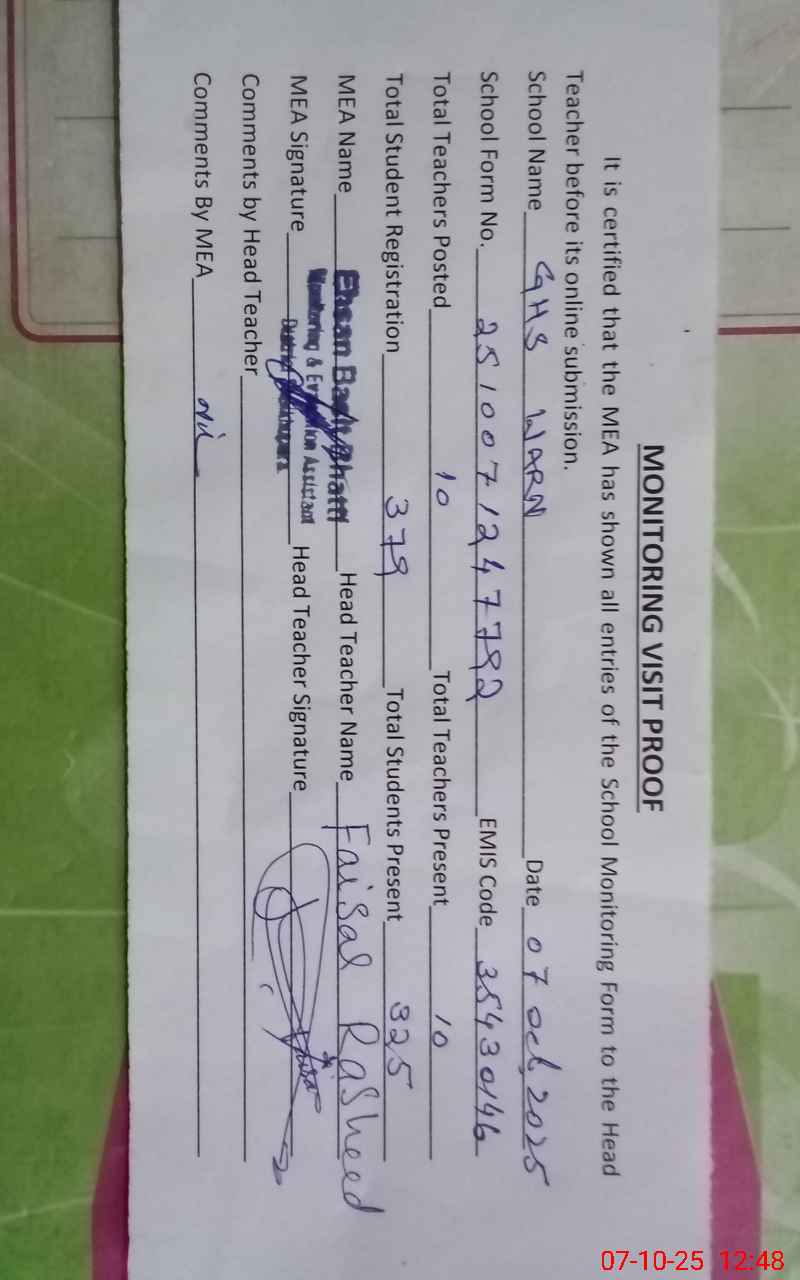 MONITORING VISIT PROOF
It is certified that the MEA has shown all entries of the School Monitoring Form to the Head
Teacher before its online submission.
School Name GHS WARN Date 07 Oct, 2025
School Form No. 2510071247792 EMIS Code 35430146
Total Teachers Posted 10 Total Teachers Present 10
Total Student Registration 379 Total Students Present 325
MEA Name Ehsan Bhatti Head Teacher Name Faisal Rasheed
Monitoring & Assistant
MEA Signature District Head Teacher Signature
Comments by Head Teacher
Comments By MEA Nil
07-10-25 12:48